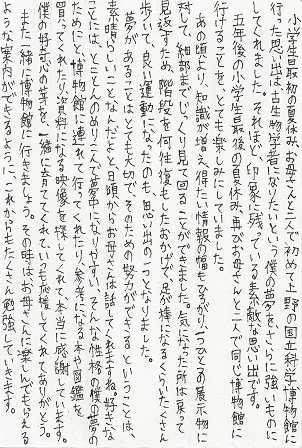 小学生最初の夏休み、お母さんと二人で初めて上野の国立科学博物館に
行った思い出は、古生物学者になりたいという僕の夢を、さらに強いものに
してくれました。それほど、印象に残っている素敵な思い出です。
五年後の小学生最後の夏休み、再びお母さんと二人で同じ博物館に
行けることを、とても楽しみにしていました。
あの頃より、知識が増え、得たい情報の幅もひろがり、一つひとつの展示物に
対して、細部までじっくり見て回ることができました。気になった所は戻って
見返すため、階段を何往復もしたおかげで足が棒になるくらいたくさん
歩いて、良い運動になったのも思い出の一つとなりました。
夢があることはとても大切で、そのための努力ができるということは、
素晴らしいことなんだよと日頃からお母さんは話してくれますね。好きな
ことは、とことんのめり二人で夢中になりやすい、そんな性格の僕の夢の
ためにと、博物館に連れて行ってくれたり、参考になる本や図鑑を
買ってくれたり、資料になる映像を探してくれて、本当に感謝しています。
僕の好奇心の芽を、一緒に育ててくれて、いつも応援してくれてありがとう。
また一緒に博物館に行きましょう。その時はお母さんに楽しんでもらえる
ような案内ができるように、これからもたくさん勉強していきます。